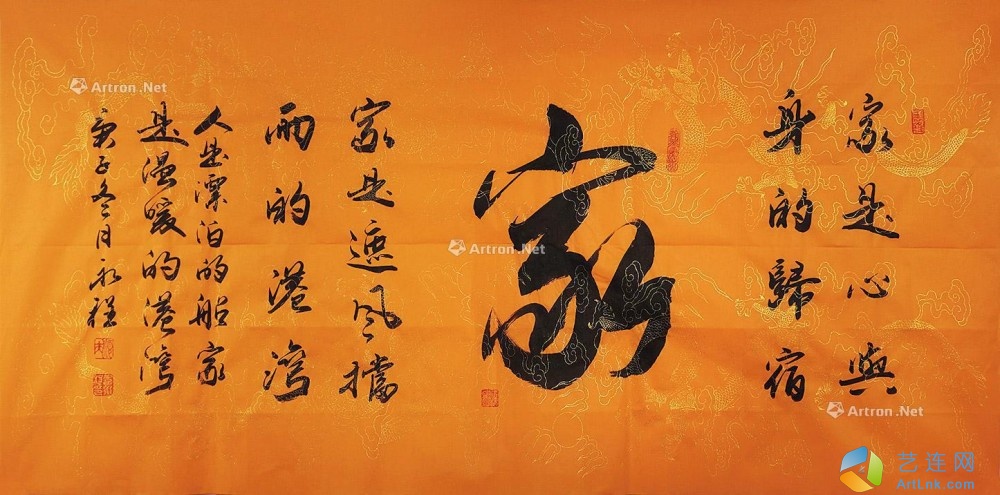 家是心與
身的歸宿
家
家是遮風擋
雨的港灣
人是漂泊的船家
是溫暖的港灣
庚子冬月永程
Artron.Net
Artron.Net
Artron.Net
艺连网
ArtLnk.com